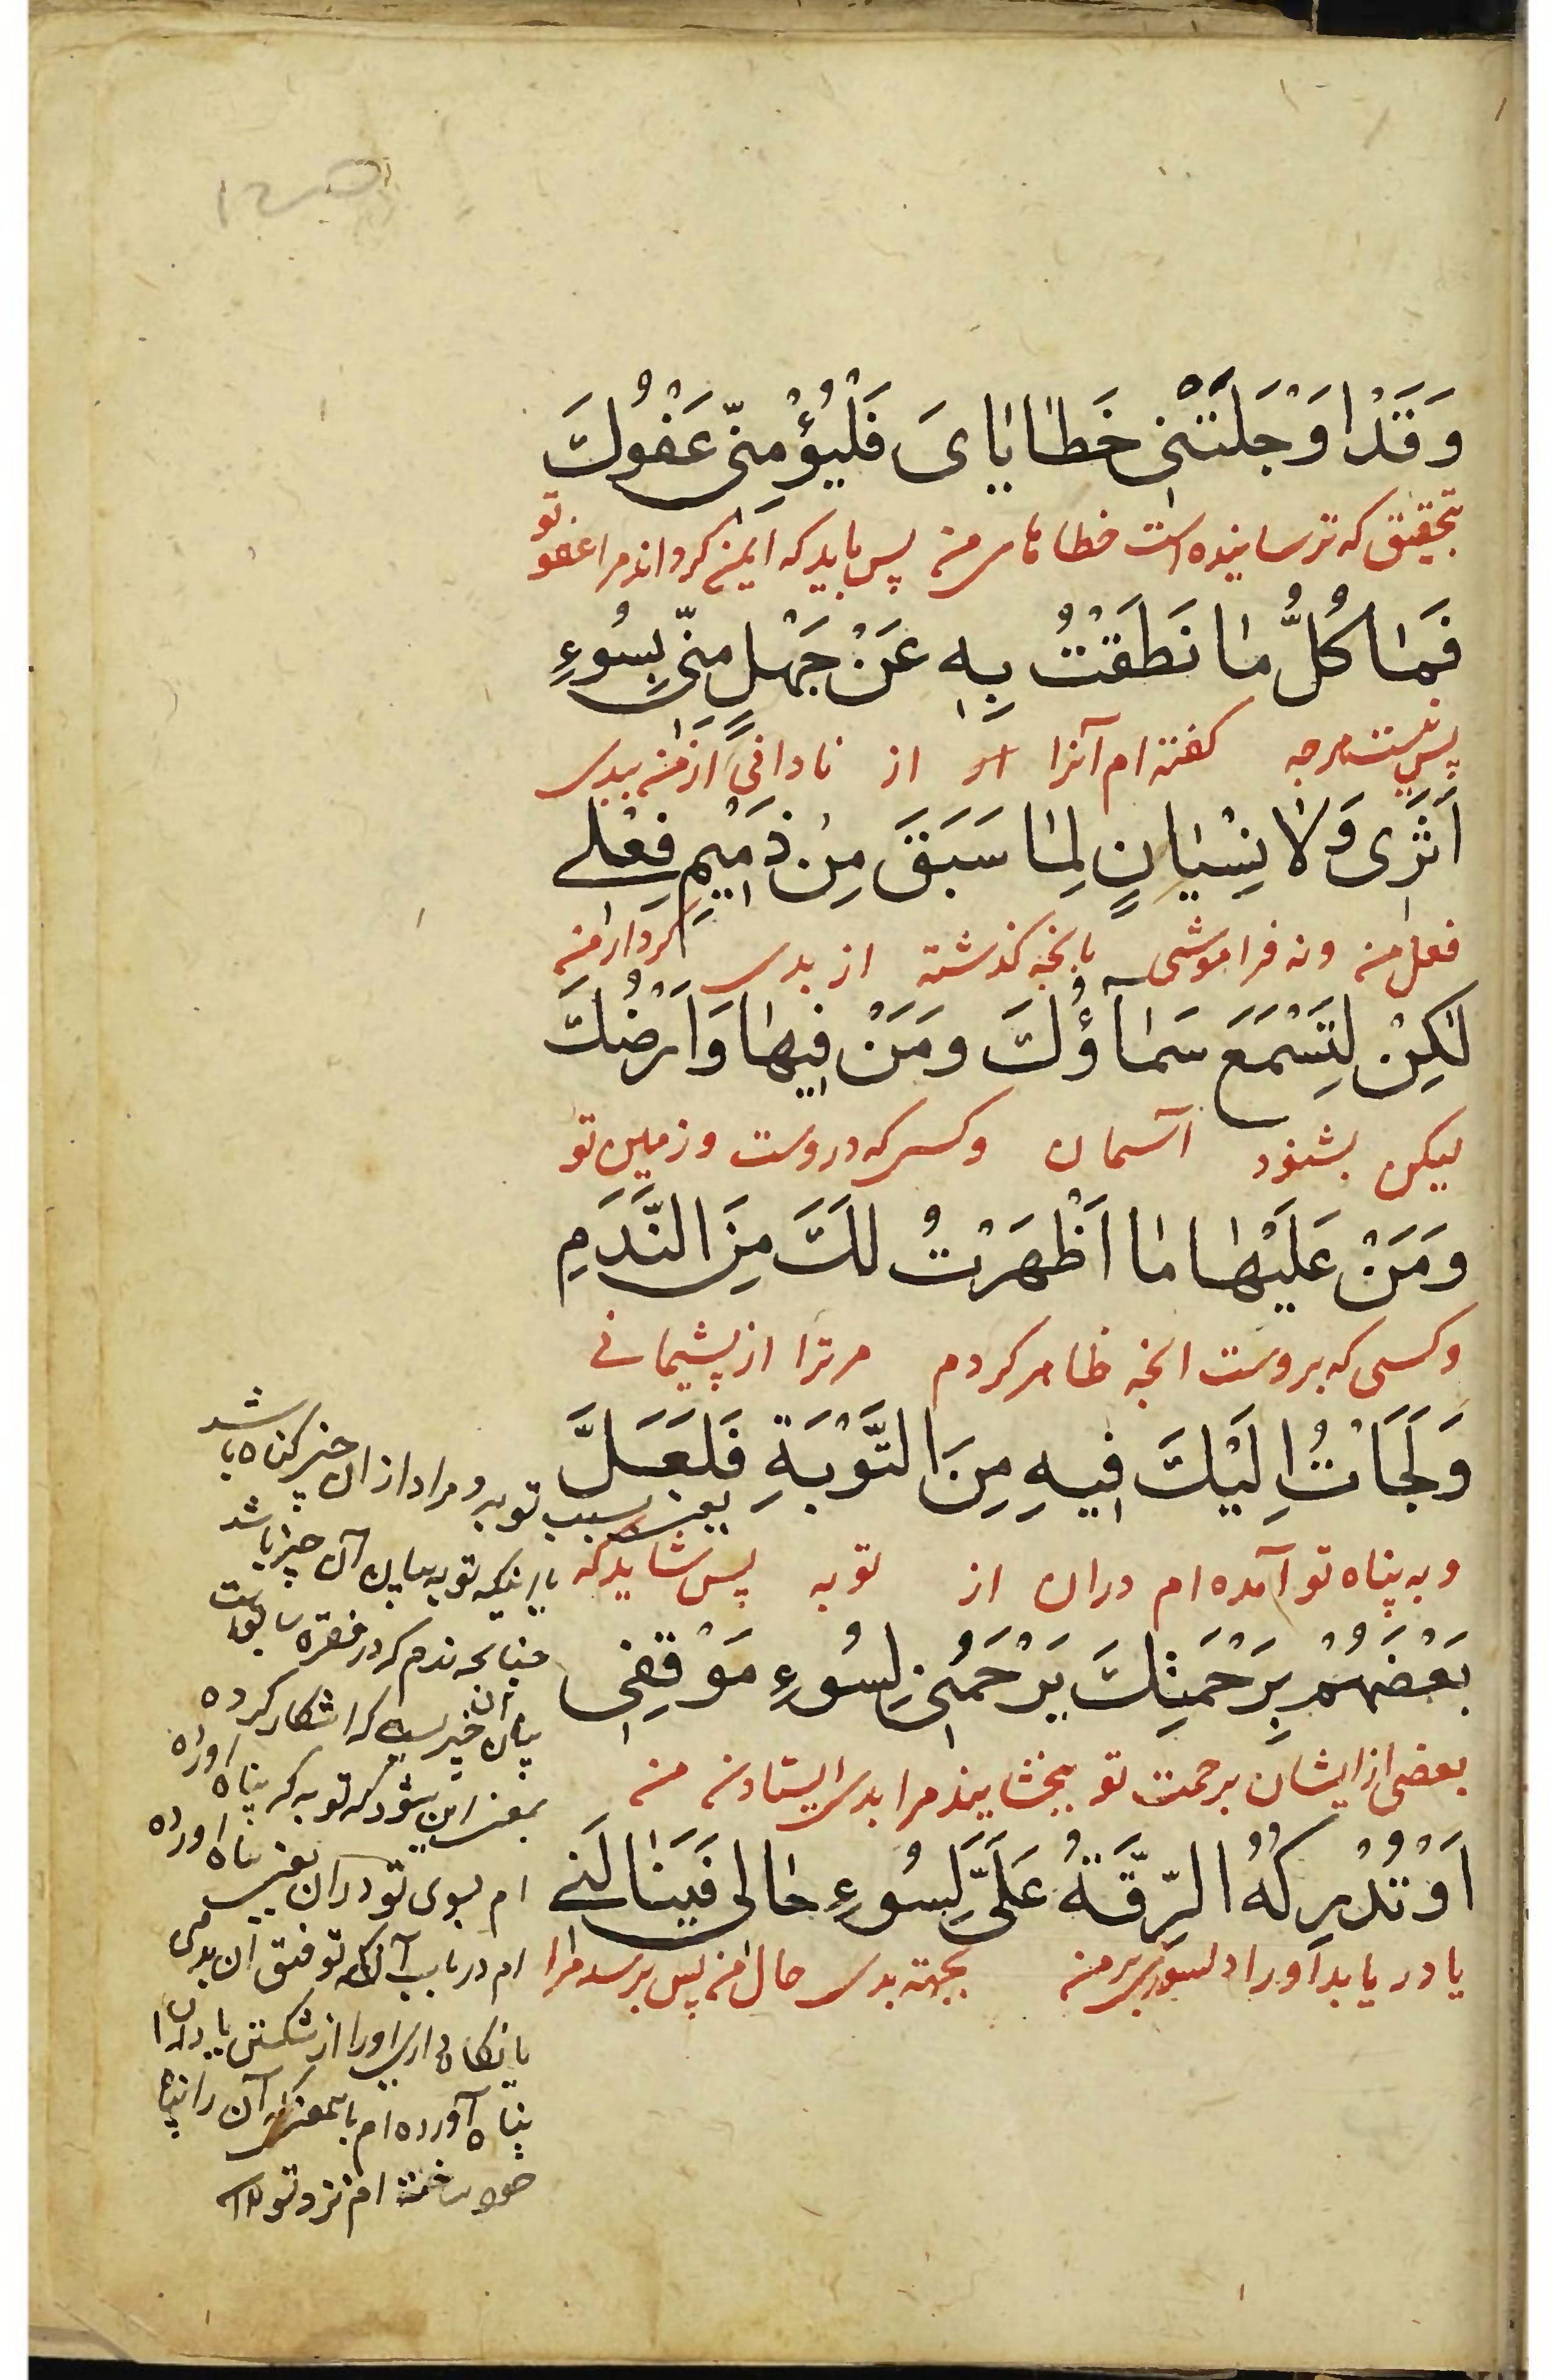 وَقَدْ اَوْجَلَتْنى خَطٰايٰاىَ فَلْيُؤْمِنّى عَفْوُكَ
بتحقیق که ترسانیده است خطاهای من پس باید که ایمن کرداند مرا عفو تو
فَمٰا كُلُّ مٰا نَطَقْتُ بِهِ عَنْ جَهْلٍ مِنّى بِسُوءِ
پس نیست هرچه کفته ام آنرا از نادانی از من ببدی
اَثَرى وَلٰا نِسْيٰانٍ لِمٰا سَبَقَ مِنْ ذَميمِ فِعْلى
فعل من ونه فراموشی بانچه کذشته از بدی کردار من
لٰكِنْ لِتَسْمَعَ سَمٰاؤُكَ وَمَنْ فيهٰا وَاَرْضُكَ
لیکن بشنود آسمان وکسی که دروست وزمین تو
وَمَنْ عَلَيْهٰا مٰا اَظْهَرْتُ لَكَ مِنَ النَّدَمِ
وکسی که بروست انچه ظاهر کردم مرترا از پشیمانی
وَلَجَاْتُ اِلَيْكَ فيهِ مِنَ التَّوْبَةِ فَلَعَلَّ
وبه پناه تو آمده ام دران از توبه پس شاید که
بَعْضَهُمْ بِرَحْمَتِكَ يَرْحَمُنى لِسُوءِ مَوْقِفى
بعضی از ایشان برحمت تو ببخشایند مرا بدی ایستادن من
اَوْ تُدْرِكُهُ الرِّقَّةُ عَلَىَّ لِسُوءِ حٰالى فَيَنٰالَنى
یا دریابد اورا دلسوزی برمن بجهته بدی حال من پس برسد مرا
یعنی بسبب توبه ومراد از ان چیز کناه باشد
یا اینکه توبه بیان آن چیز باشد
چنانچه ندم که در فقره سابق است
بیان ان چیز است که اشکار کرده
بمعنی این میشود که توبه که پناه آورده
ام بسوی تو دران یعنی پناه آورده
ام در باب آن که توفیق ان بدهی
یا نکاه داری اورا از شکستن یا دران
پناه آورده ام بامعنی که آن را پناه
خود ساخته ام نزد تو ۱۲